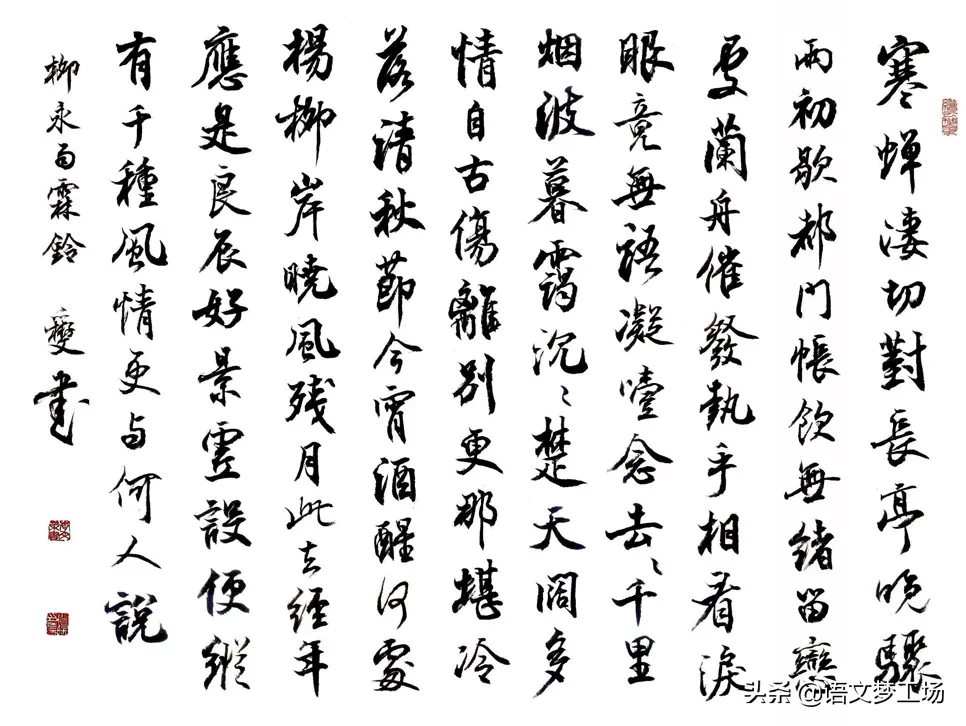 寒蝉淒切對長亭晚驟
雨初歇都門帳飲無緒留戀
處蘭舟催發執手相看淚
眼竟無語凝噎念去〻千里
烟波暮靄沉〻楚天闊多
情自古傷離別更那堪冷
落清秋節今宵酒醒何處
楊柳岸曉風残月此去經年
應是良辰好景虛設便縱
有千種風情更与何人說
柳永雨霖鈴 燮書
头条 @语文梦工场